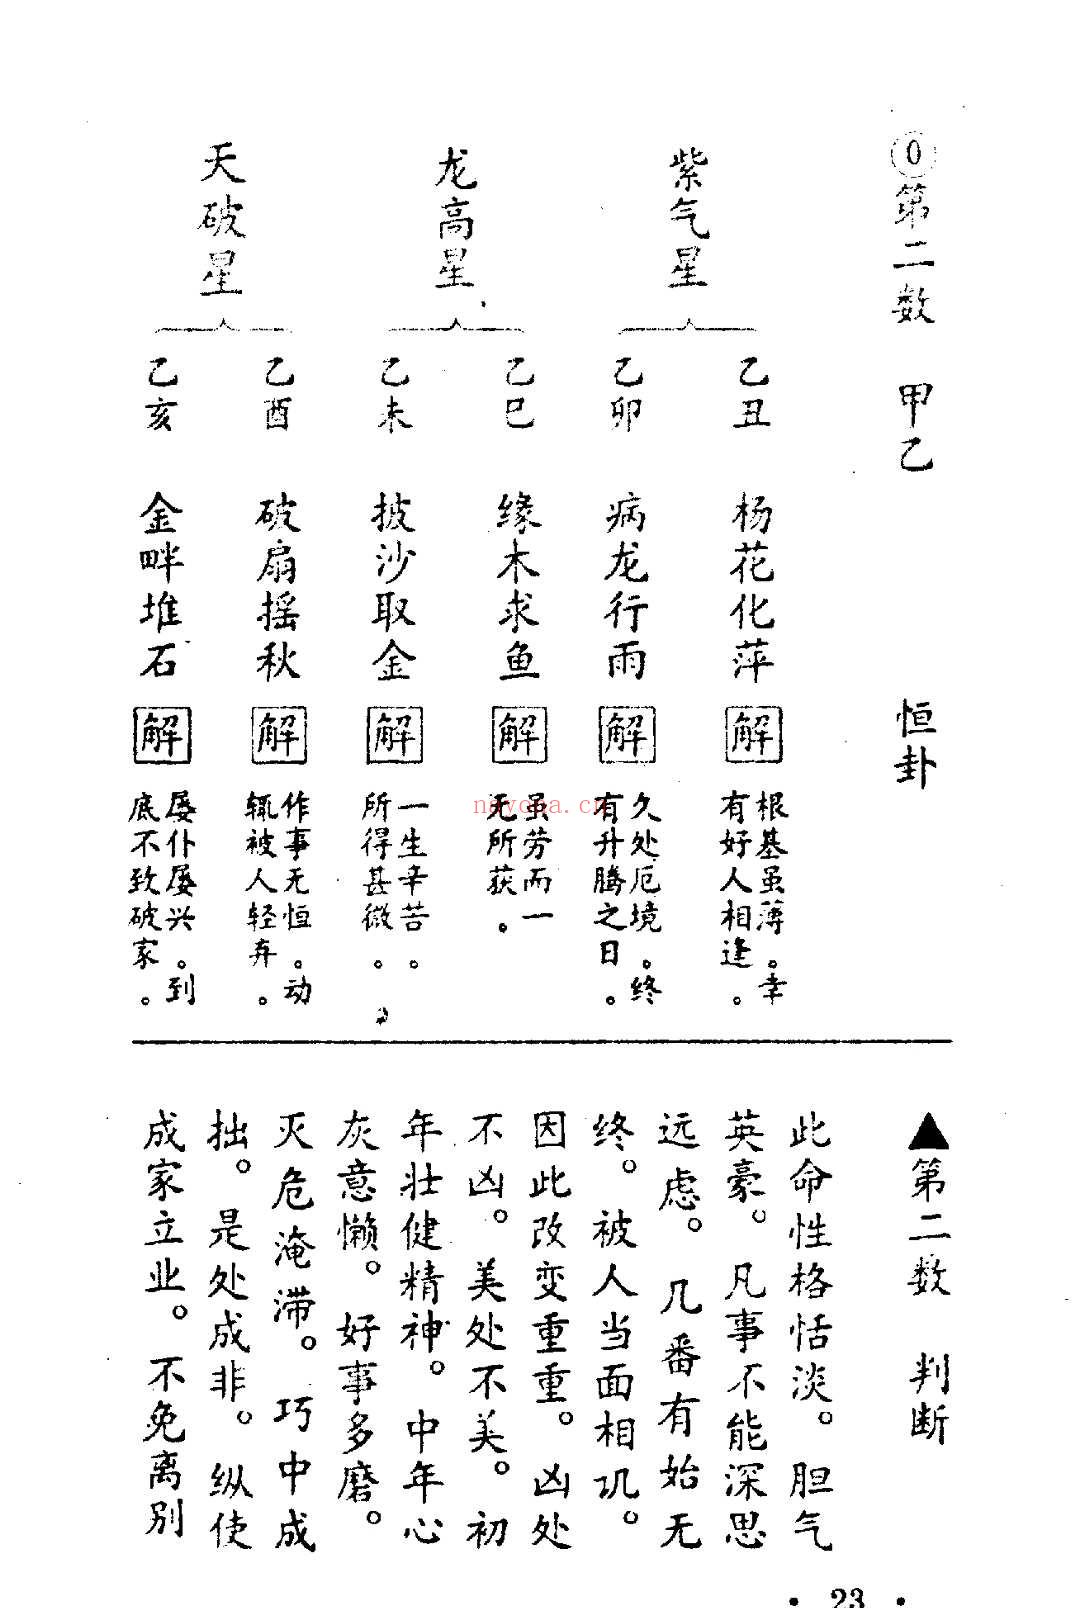 ⓪第二数 甲乙 恒卦
紫气星
乙丑 杨花化萍 解 根基虽薄。幸
有好人相逢。
乙卯 病龙行雨 解 久处厄境。终
有升腾之日。
龙高星
乙巳 缘木求鱼 解 虽劳而一
无所获。
乙未 披沙取金 解 一生辛苦。
所得甚微。
天破星
乙酉 破扇摇秋 解 作事无恒。动
辄被人轻弃。
乙亥 金畔堆石 解 屡仆屡兴。到
底不致破家。
▲第二数 判断
此命性格恬淡。胆气
英豪。凡事不能深思
远虑。几番有始无
终。被人当面相讥。
因此改变重重。凶处
不凶。美处不美。初
年壮健精神。中年心
灰意懒。好事多磨。
灭危淹滞。巧中成
拙。是处成非。纵使
成家立业。不免离别
·23·